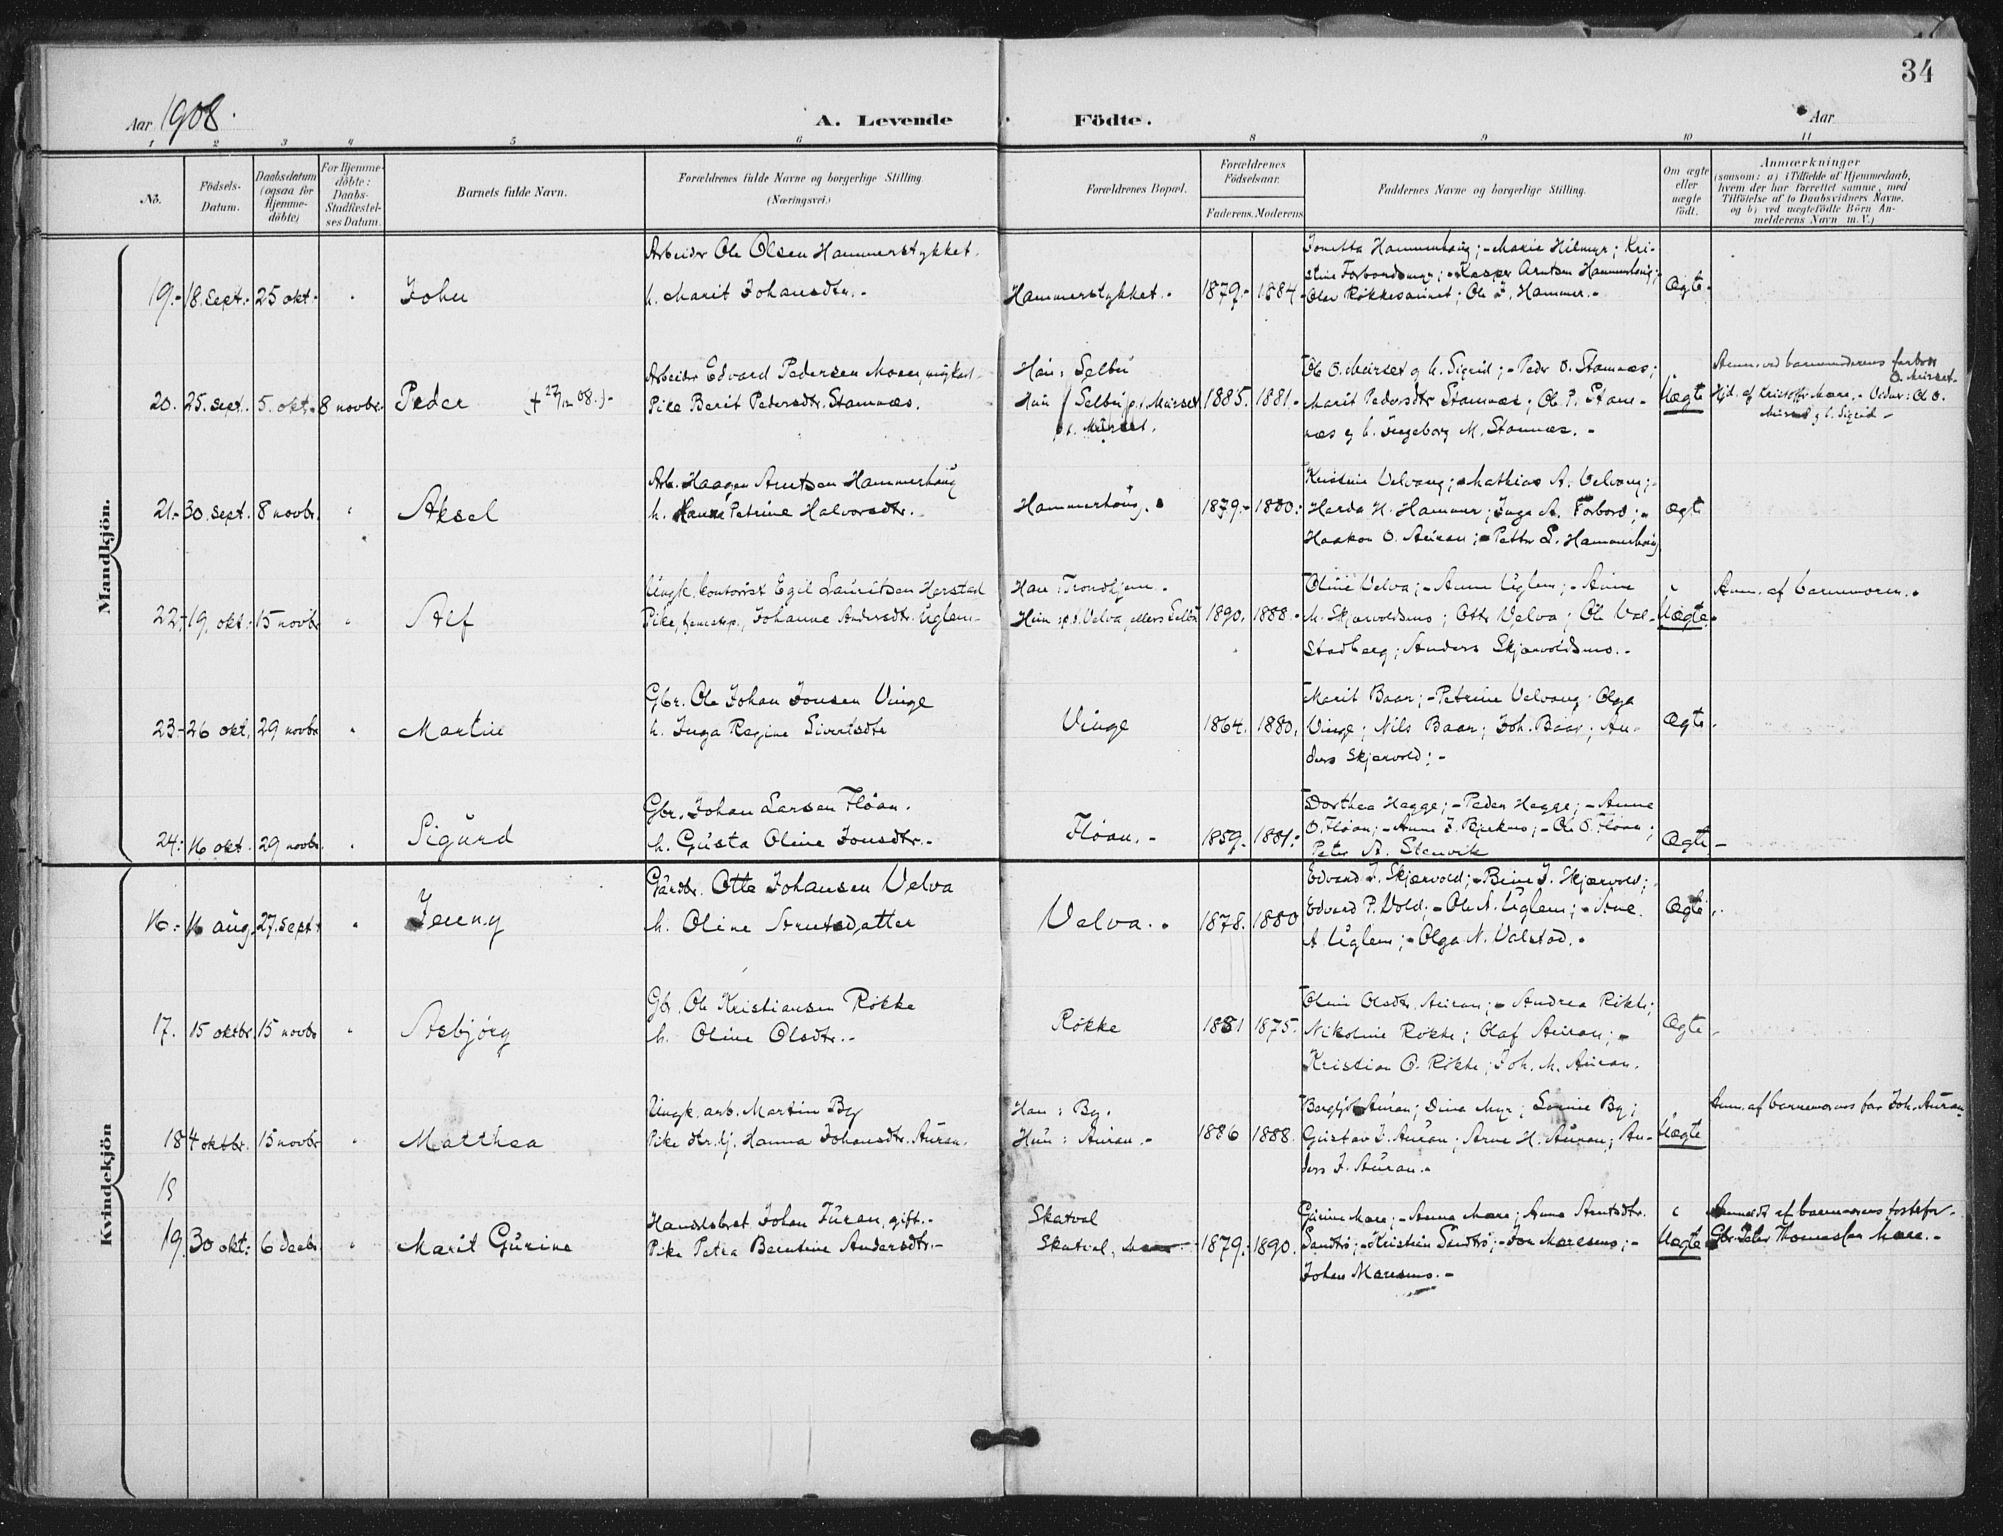 34
Aar 1908.
A. Levende Födte.
Aar
1 2 3 4 5 6 8 9 10 11
No.
Födsels-Datum.
Daabsdatum (ogsaa for Hjemme-döbte)
For Hjemme-döbte: Daabs-Stadfæstel-ses Datum.
Barnets fulde Navn.
Forældrenes fulde Navne og borgerlige Stilling (Næringsvei.)
Forældrenes Bopæl.
Forældrenes Födselsaar.
Faderens. Moderens
Faddernes Navne og borgerlige Stilling.
Om ægte eller uægte födt.
Anmærkninger
(saasom: a) i Tilfælde af Hjemmedaab,
hvem der har forrettet samme, med
Tilföielse af to Daabsvidners Navne,
og b) ved uægtefödte Börn An-
melderens Navn m. V.)
Mandkjön.
Arbeider Ole Olsen Hammerstykket.
h. Marit Johansdtr.-
19.- 18. sept.- 25 okt.- " John
Hammerstykket. 1879.- 1884.-
Jonetta Hammerhaug;- Marie Hilmyr; Kri-
stine Forbordsmyr;- Kasper Arntsen Hammerhaug;
Olav Røkkesaunet; Ole J. Hammer.-
Ægte
Arbeider Edvard Pedersen Moen, ungkarl
Pike Berit Pedersdtr. Stamnæs.
20. 25. sept. 5. okt.- 8 novbr. Peder († 27/12 08.)-
Han: Selbu
Hun: Selbu p.t. Mürset
p.t. Mürset.
1885. 1881.-
Ole O. Mürset og h. Sigrid;- Peder O. Stamnæs;
Marit Pedersdtr Stamnæs; Ole P. Stam-
næs og h. Ingeborg M. Stamnæs.-
Uægte
O. Mürset-
Hjd. af Kristoffer Mære.- Vidner: Ole O.
Mürset og h. Sigrid-
Arb. Haagen Arntsen Hammerhaug
h. Hanna Petrine Halvorsdtr.-
21.- 30. sept. 8 novbr. " Aksel
Hammerhaug. 1879.- 1880.-
Kristine Velvang;- Mathias A. Velvang;-
Harda H. Hammer; Inga A. Forbord;-
Haakon O. Auran;- Petter L. Hammerhaug
Ægte
Ungk. kontorist Egil Lauritsen Harstad
Pike tjenestep. Johanne Andersdtr. Uglem-
22.- 19. okt.- 15 novbr " Alf
Han: Trondhjem.-
Hun: p.t. Velva, ellers Selbu
1890. 1888.-
Oline Velva;- Anne Uglem;- Anne
M. Skjærvoldsmo; Otto Velva; Ole Val-
stadberg; Anders Skjærvoldsmo.-
Uægte.
Anm. af barnemoren.-
Gbr. Ole Johan Jonsen Vinge
h. Inga Regine Sivertsdtr
23.- 26 okt. 29 novbr " Martin
Vinge 1864. 1880.
Marit Baar;- Petrine Velvang; Olga
Vinge; Nils Baar; Joh. Baar; An-
ders Skjærvold;-
Ægte
Gbr. Johan Larsen Fløan.
h. Gusta Oline Jonsdtr.-
24.- 16 okt. 29 novbr. " Sigurd
Fløan.- 1859. 1881.-
Dorthea Hegge;- Peder Hegge;- Anne
O. Fløan;- Anne J. Bjerknes;- Ole O. Fløan;
Peter A. Stenvik
Ægte-
Kvindekjön
Gårdbr. Otto Johansen Velva
h. Oline Arntsdatter
16.- 16 aug. 27 sept. " Jenny
Velva. 1878. 1880
Edvard J. Skjærvold;- Berit J. Skjærvold;-
Edvard P. Vold;- Ole A. Uglem;- Anne
A. Uglem;- Olga N. Valstad.-
Ægte
Gbr. Ole Kristiansen Røkke
h. Oline Olsdtr.-
17. 15 oktbr. 15 novbr " Asbjørg
Røkke 1881 1875.
Oline Olsdtr. Auran;- Andrea Røkke;
Nikoline Røkke; Olaf Auran;-
Kristian O. Røkke; Joh. M. Auran.
Ægte
Ungk. arb. Martin By
Pike dtr. hj. Hanna Johansdtr. Auran.
18 4 oktbr. 15 novbr " Matthea
Han: By.
Hun: Auran.-
1886 1888.
Bergljot Auran; Dina Myr; Lovine By;
Gustav J. Auran; Arne H. Auran; An-
ders J. Auran.-
Uægte
Anm. af barnemorens far Joh. Auran
19
Handelsbet. Johan Furan, gift.-
Pike Petra Berntine Andersdtr.-
19. 30 okt. 6 decbr " Marit Gurine
Skatval
Skatval,
1879.- 1890.
Gurine Mære;- Anna Mære; Anna Arntsdtr.
Sandtrø;- Kristein Sandtrø;- Jon Mæresmo;-
Johan Mæresmo.-
Uægte
Anmeldt af barnemorens fosterfar
Gbr. Peter Thomassen Mære.-